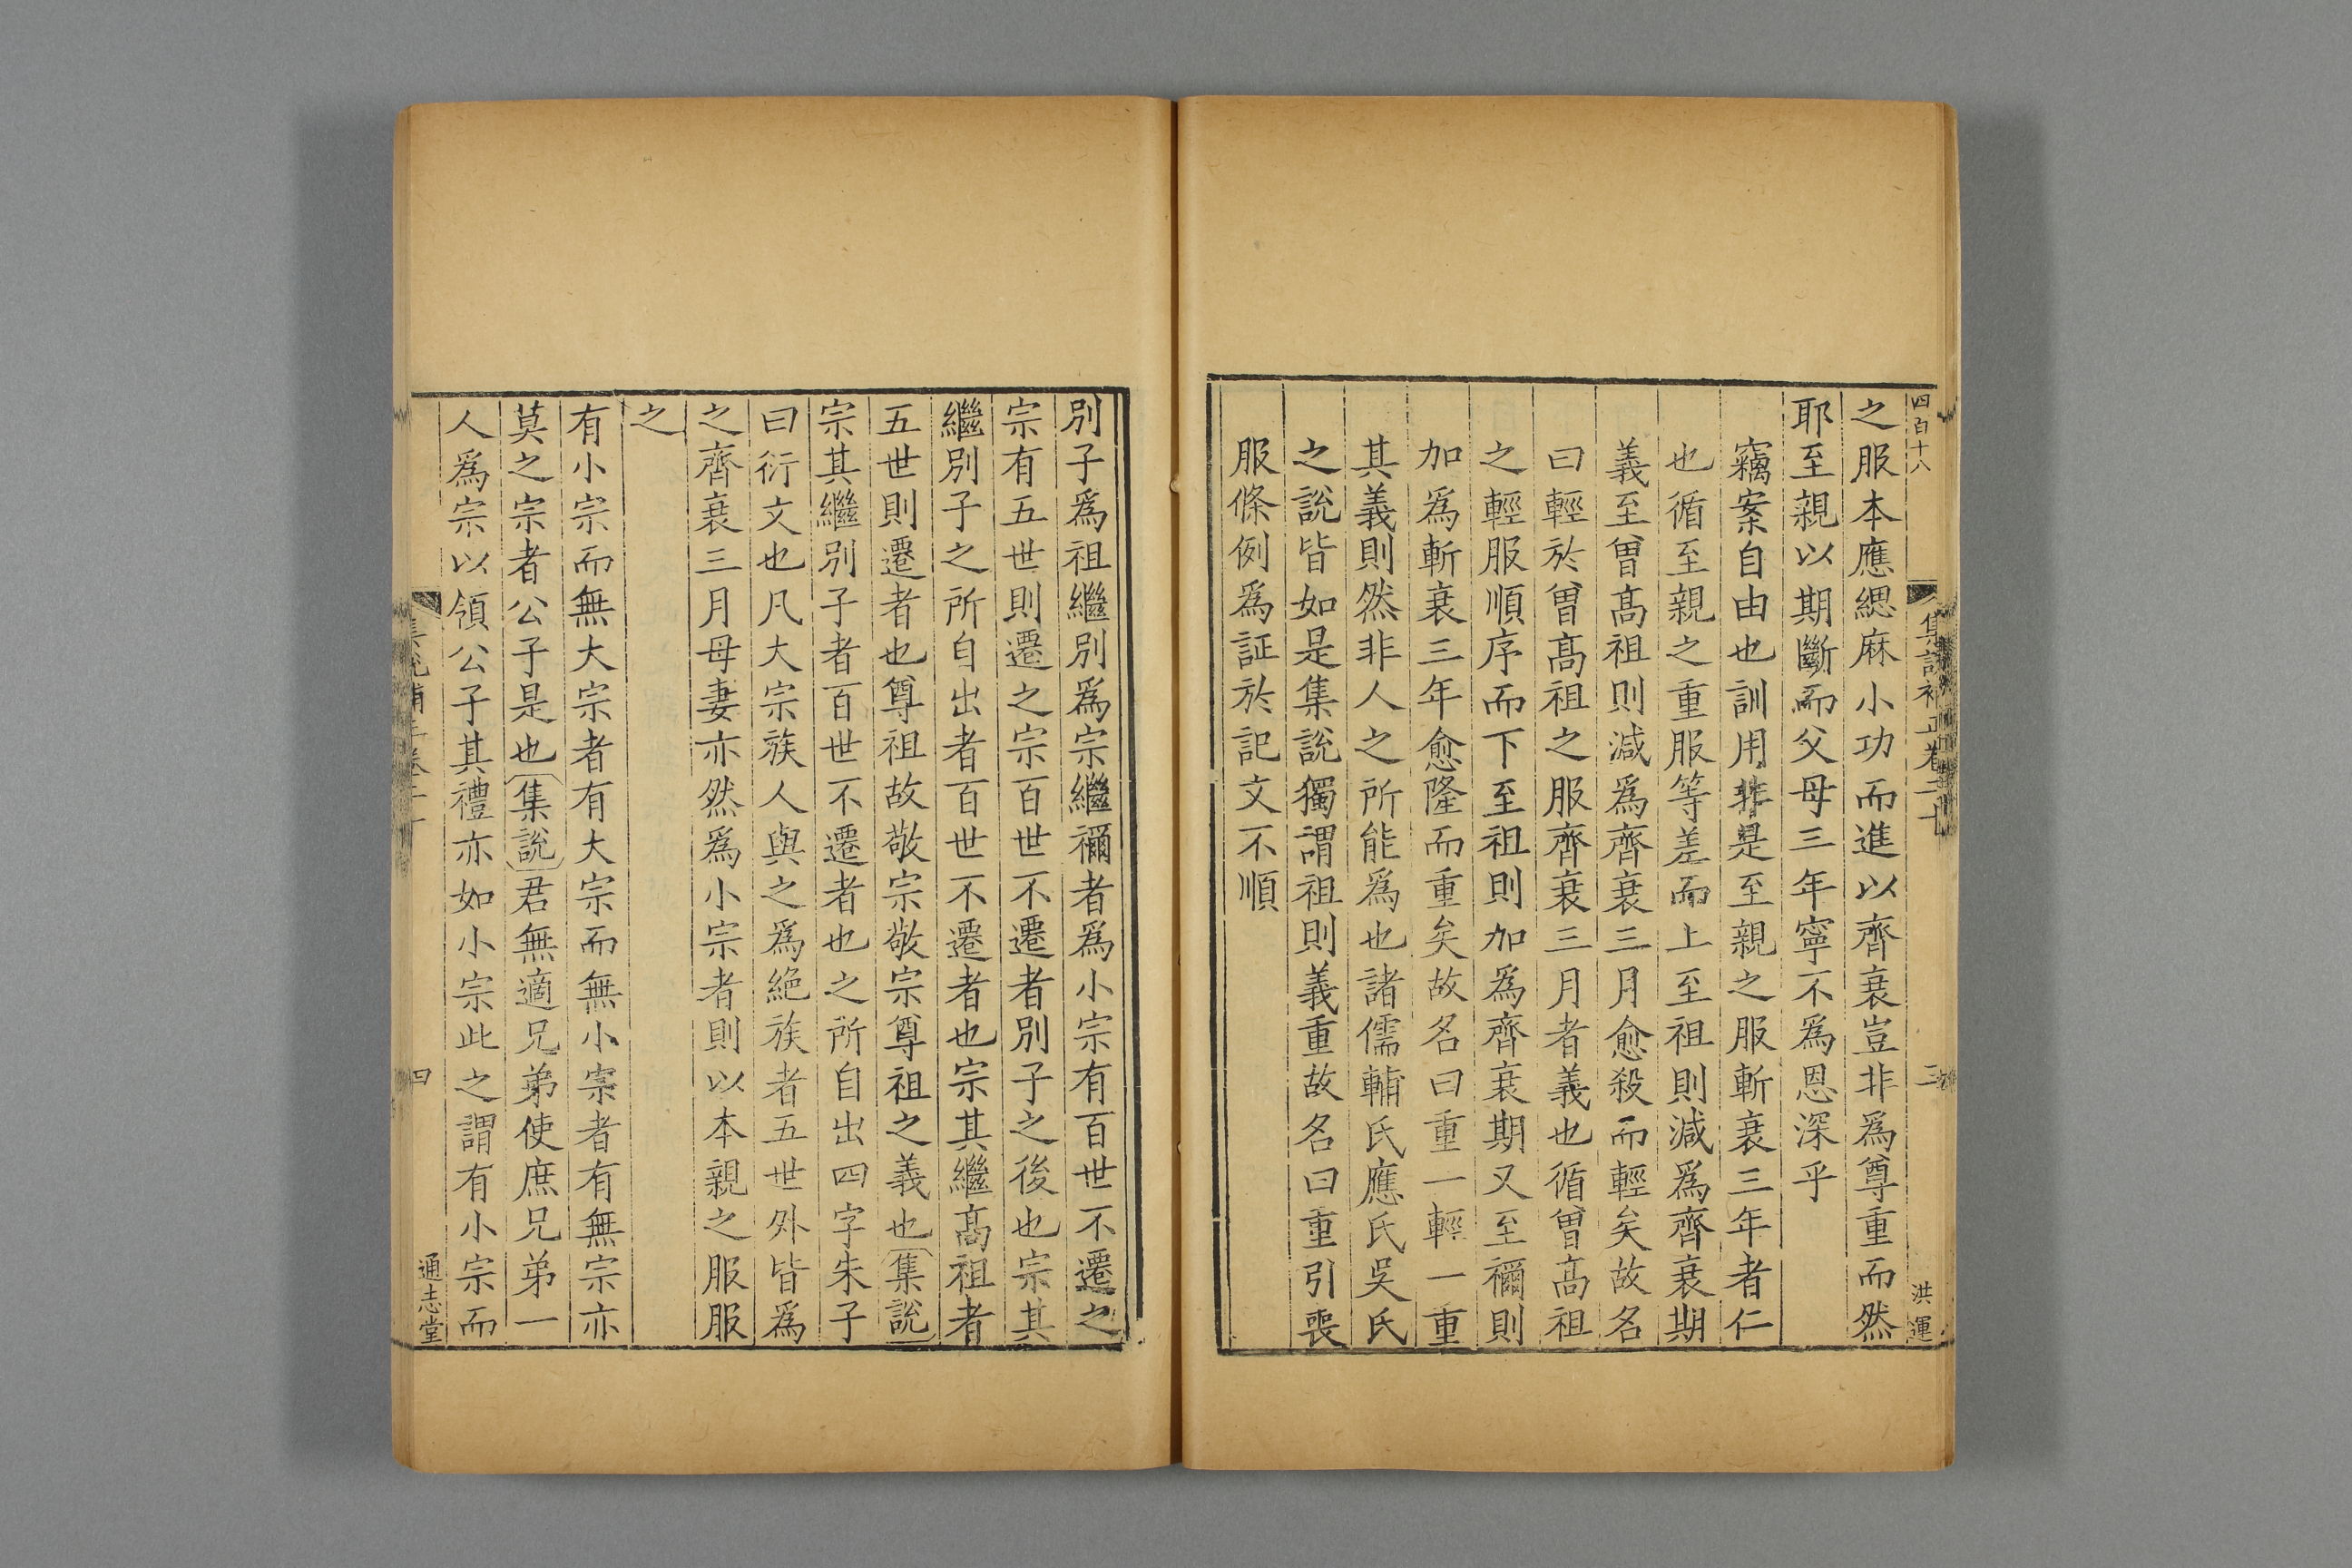 四百十八
集說補正卷二十
三
洪運
之服本應緦麻小功而進以齊衰豈非爲尊重而然
耶至親以期斷而父母三年寧不爲恩深乎
竊案自由也訓用非是至親之服斬衰三年者仁
也循至親之重服等差而上至祖則減爲齊衰期
義至曾髙祖則減爲齊衰三月愈殺而輕矣故名
曰輕於曾髙祖之服齊衰三月者義也循曾髙祖
之輕服順序而下至祖則加爲齊衰期又至禰則
加爲斬衰三年愈隆而重矣故名曰重一輕一重
其義則然非人之所能爲也諸儒輔氏應氏吳氏
之說皆如是集說獨謂祖則義重故名曰重引喪
服條例爲証於記文不順
別子爲祖繼別爲宗繼禰者爲小宗有百世不遷之
宗有五世則遷之宗百世不遷者別子之後也宗其
繼別子之所自出者百世不遷者也宗其繼髙祖者
五世則遷者也尊祖故敬宗敬宗尊祖之義也集說
宗其繼別子者百世不遷者也之所自出四字朱子
曰衍文也凡大宗族人與之爲絶族者五世外皆爲
之齊衰三月母妻亦然爲小宗者則以本親之服服
之
有小宗而無大宗者有大宗而無小宗者有無宗亦
莫之宗者公子是也集說君無適兄弟使庶兄弟一
人爲宗以領公子其禮亦如小宗此之謂有小宗而
四
通志堂